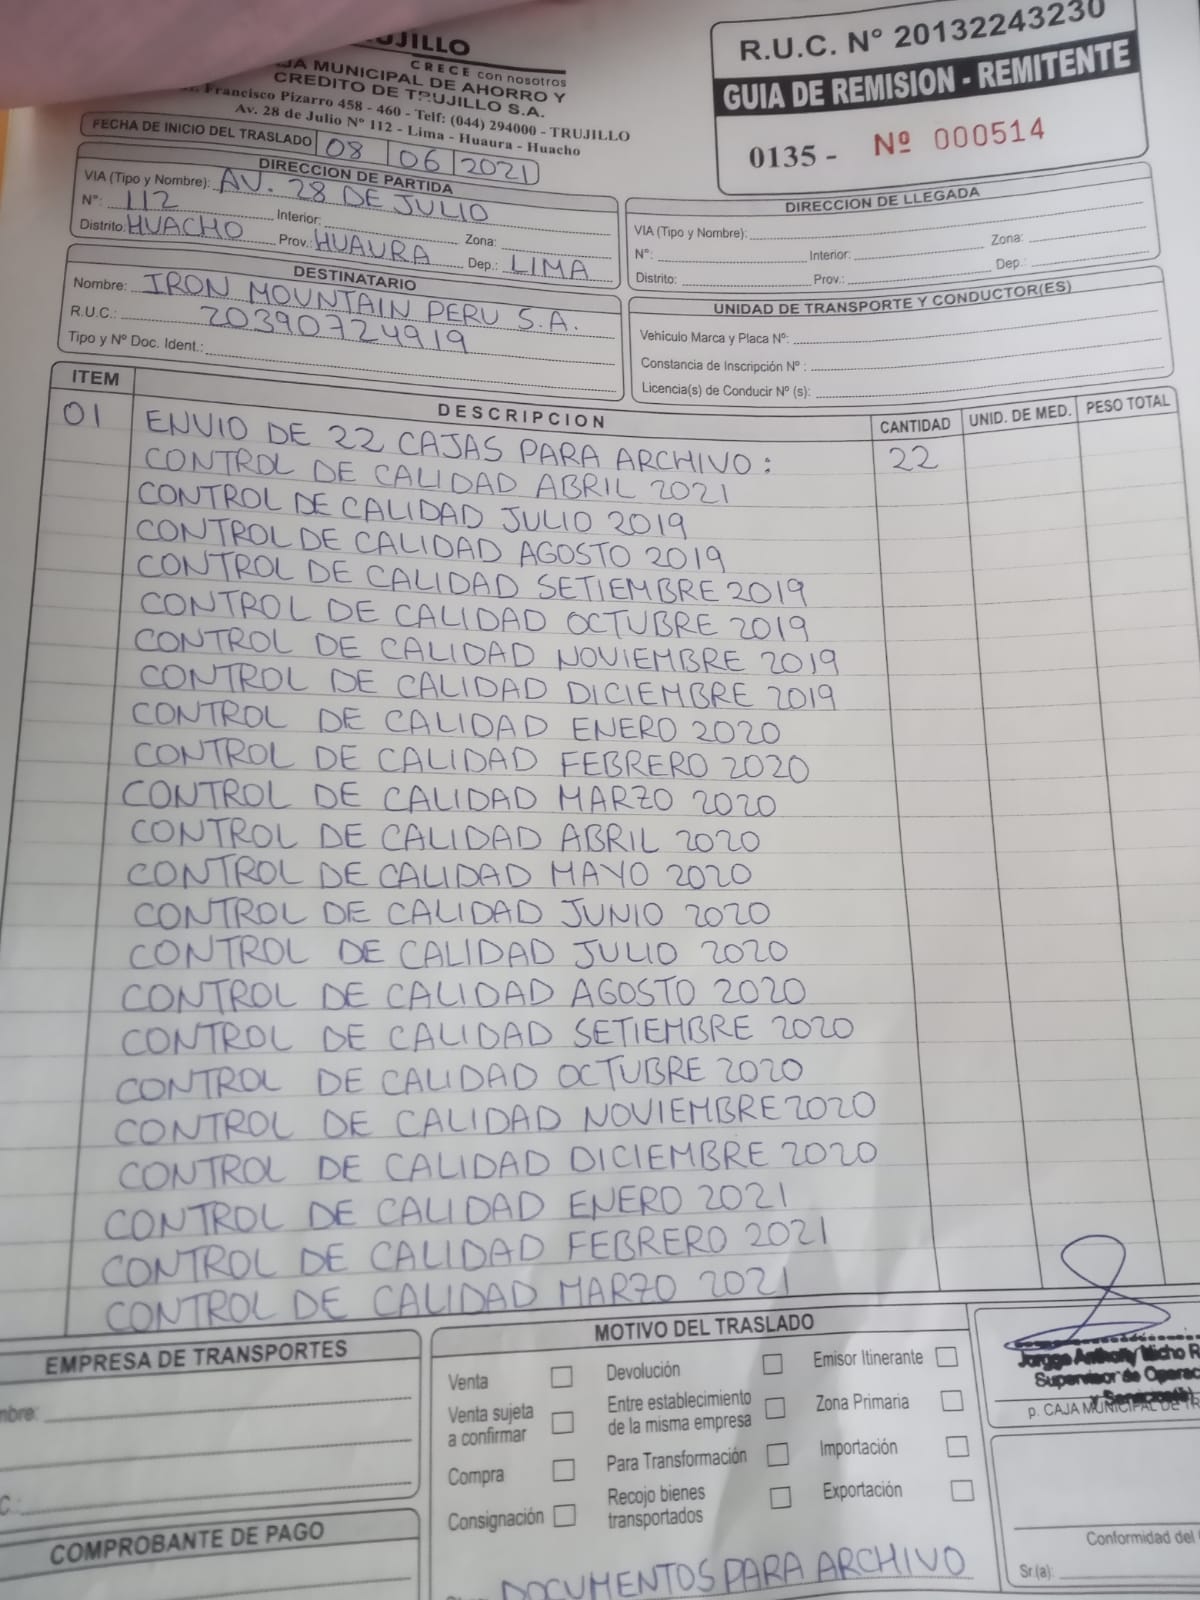 CRECE con nosotros
MUNICIPAL DE AHORRO Y
CREDITO DE TRUJILLO S.A.
Francisco Pizarro 458 - 460 - Telf: (044) 294000 - TRUJILLO
Av. 28 de Julio Nº 112 - Lima - Huaura - Huacho
R.U.C. Nº 20132243230
GUIA DE REMISION - REMITENTE
0135 - Nº 000514
FECHA DE INICIO DEL TRASLADO 08 06 2021
DIRECCION DE PARTIDA
VIA (Tipo y Nombre): AV. 28 DE JULIO
Nº: 112 Interior: Zona:
Distrito: HUACHO Prov.: HUAURA Dep.: LIMA
DIRECCION DE LLEGADA
VIA (Tipo y Nombre):
Nº: Interior: Zona:
Distrito: Prov.: Dep.:
DESTINATARIO
Nombre: IRON MOUNTAIN PERU S.A.
R.U.C.: 20390724919
Tipo y Nº Doc. Ident.:
UNIDAD DE TRANSPORTE Y CONDUCTOR(ES)
Vehículo Marca y Placa Nº:
Constancia de Inscripción Nº :
Licencia(s) de Conducir Nº (s):
ITEM DESCRIPCION CANTIDAD UNID. DE MED. PESO TOTAL
01 ENVIO DE 22 CAJAS PARA ARCHIVO : 22
CONTROL DE CALIDAD ABRIL 2021
CONTROL DE CALIDAD JULIO 2019
CONTROL DE CALIDAD AGOSTO 2019
CONTROL DE CALIDAD SETIEMBRE 2019
CONTROL DE CALIDAD OCTUBRE 2019
CONTROL DE CALIDAD NOVIEMBRE 2019
CONTROL DE CALIDAD DICIEMBRE 2019
CONTROL DE CALIDAD ENERO 2020
CONTROL DE CALIDAD FEBRERO 2020
CONTROL DE CALIDAD MARZO 2020
CONTROL DE CALIDAD ABRIL 2020
CONTROL DE CALIDAD MAYO 2020
CONTROL DE CALIDAD JUNIO 2020
CONTROL DE CALIDAD JULIO 2020
CONTROL DE CALIDAD AGOSTO 2020
CONTROL DE CALIDAD SETIEMBRE 2020
CONTROL DE CALIDAD OCTUBRE 2020
CONTROL DE CALIDAD NOVIEMBRE 2020
CONTROL DE CALIDAD DICIEMBRE 2020
CONTROL DE CALIDAD ENERO 2021
CONTROL DE CALIDAD FEBRERO 2021
CONTROL DE CALIDAD MARZO 2021
EMPRESA DE TRANSPORTES
COMPROBANTE DE PAGO
MOTIVO DEL TRASLADO
Venta Devolución Emisor Itinerante
Venta sujeta a confirmar Entre establecimiento de la misma empresa Zona Primaria
Compra Para Transformación Importación
Consignación Recojo bienes transportados Exportación
DOCUMENTOS PARA ARCHIVO
Anthony
Supervisor de
p. CAJA MUNICIPAL DE
Conformidad del
Sr(a):